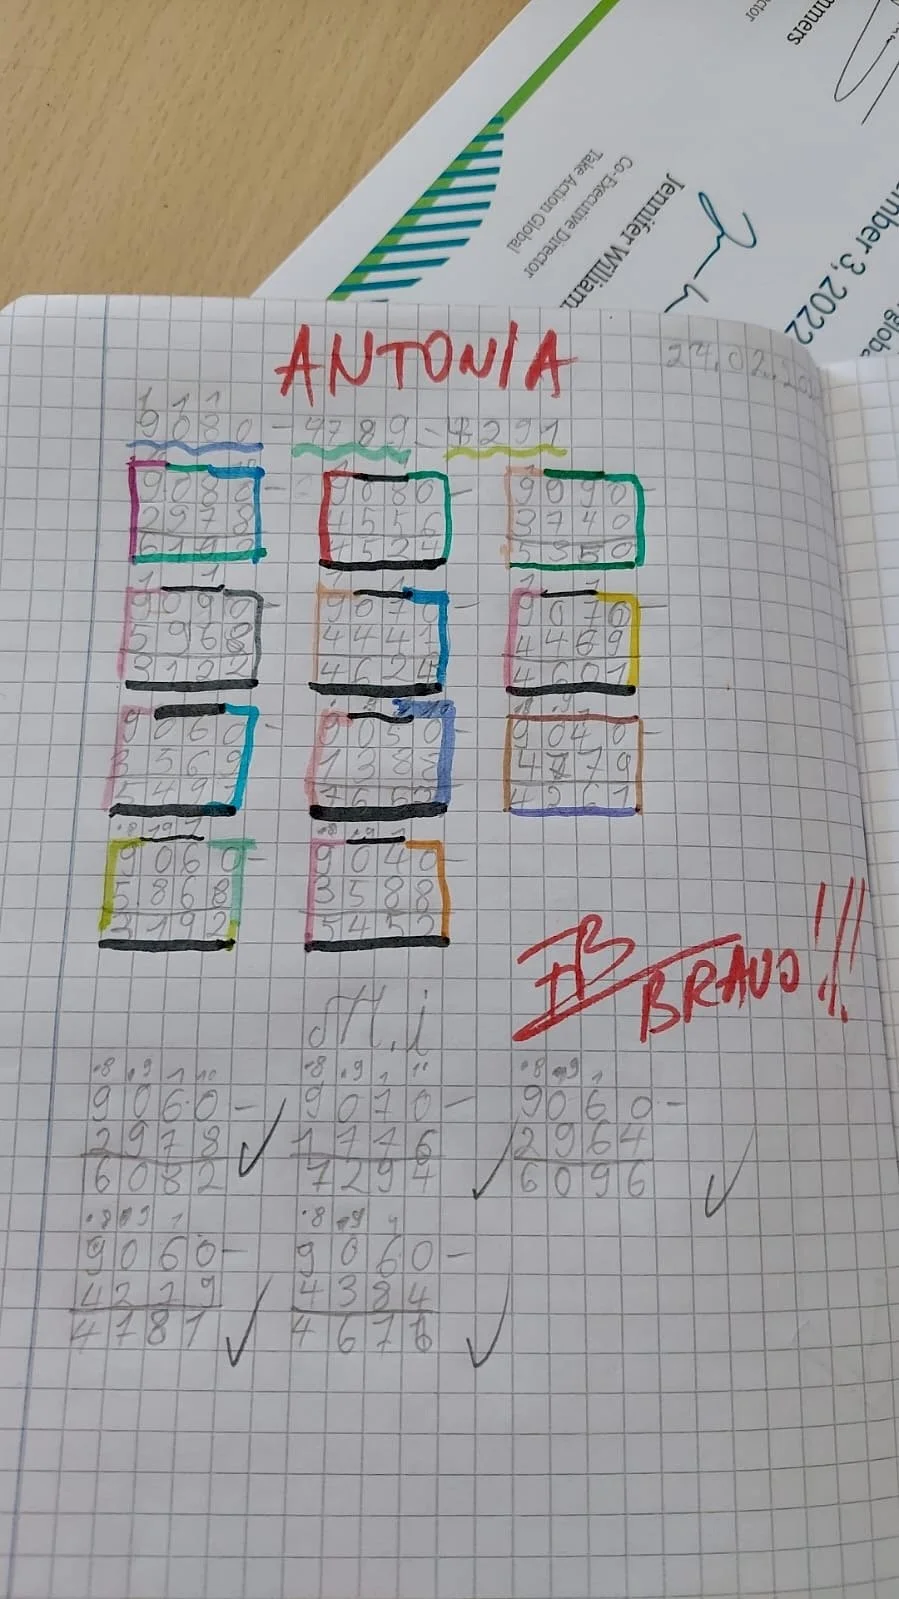 mmers
ctor
Jennifer William
Co-Executive Director
Take Action Global
mber 3, 2022
ANTONIA
24.02.20
1 1 1
9080 - 4789 = 4291
9 0 8 0 -
2 9 7 8
9 0 8 0 -
4 5 5 6
4 5 2 4
9 0 9 0
3 7 4 0
5 3 5 0
9 0 9 0 -
5 9 6 8
3 1 2 2
9 0 7 0 -
4 4 4 1
4 6 2 4
9 0 7 0 -
4 4 6 9
4 6 0 1
9 0 6 0 -
3 5 6 9
5 4 9 1
9 0 5 0 -
9 0 4 0 -
4 7 7 9
4 2 6 1
9 0 6 0 -
5 8 6 8
3 1 9 2
9 0 4 0 -
3 5 8 8
5 4 5 2
BRAVO!!!
9 0 6 0 -
2 9 7 8
6 0 8 2
9 0 7 0 -
1 7 7 6
7 2 9 4
9 0 6 0 -
2 9 6 4
6 0 9 6
9 0 6 0 -
4 2 7 9
4 7 8 1
9 0 6 0 -
4 3 8 4
4 6 7 6